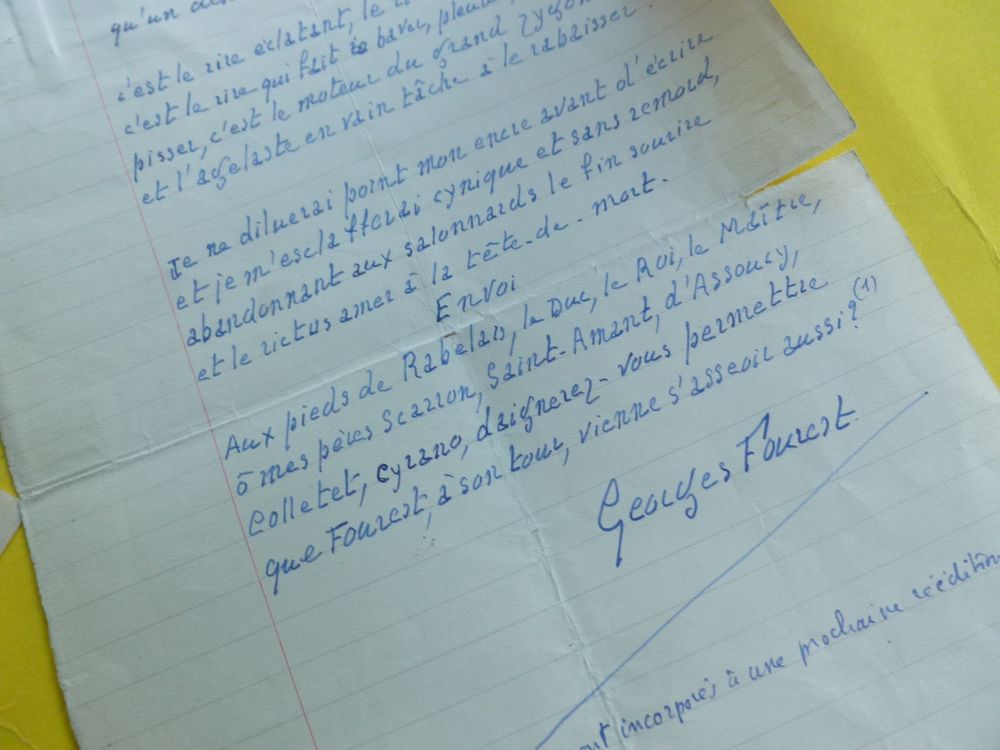 qu'un
c'est le rire éclatant, le
c'est le rire qui fait baver,
pisser, c'est le moteur du grand
et l'agélaste en vain tâche à le rabaisser.
Je ne diluerai point mon encre avant d'écrire
et je m'esclafferai cynique et sans remord,
abandonnant aux salonnards le fin sourire
et le rictus amer à la tête-de-mort.
Envoi
Aux pieds de Rabelais, le Duc, le Roi, le Maître,
ô mes pères Scarron, Saint-Amant, d'Assoucy,
Colletet, Cyrano, daignerez-vous permettre
que Fourest, à son tour, vienne s'asseoir aussi? (1)
Georges Fourest
incorporés à une prochaine réédition